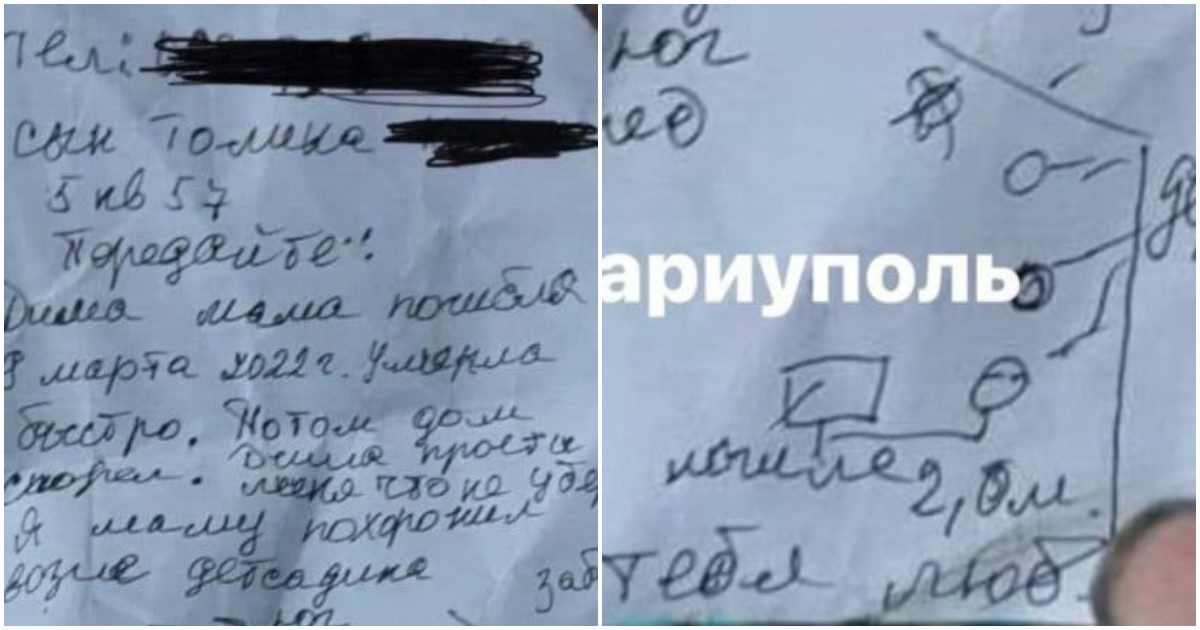 тел:
сын Толика
5 кв 57
Передайте:
Дима мама погибла
9 марта 2022 г. Умерла
быстро. Потом дом
сгорел. Дима прости
меня что не убе
Я маму похоронил
возле детсадика
заб
юг
юг
ед
де
ариуполь
могила
2,0 м.
тебя люб